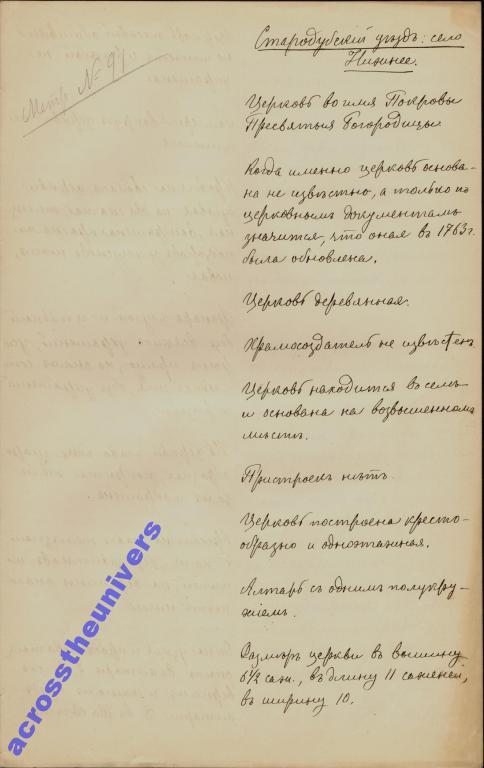 Метр. № 91
Стародубскій уѣздъ: село
Нижнее.
Церковь во имя Покровы
Пресвятыя Богородицы
Когда именно церковь основа-
на не извѣстно, а только по
церковнымъ документамъ
значится, что оная въ 1763 г.
была обновлена.
Церковь деревянная.
Храмосоздатель не извѣстенъ
Церковь находится въ селѣ
и основана на возвышенномъ
мѣстѣ.
Пристроекъ нѣтъ.
Церковь построена кресто-
образно и одноэтажная.
Алтарь съ однимъ полукру-
жіемъ.
Размѣръ церкви въ вышину
6½ саж., въ длину 11 саженей,
въ ширину 10.
acrosstheunivers